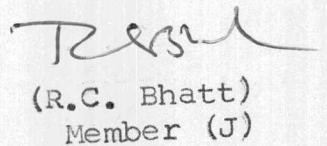 (R.C. Bhatt)
Member (J)